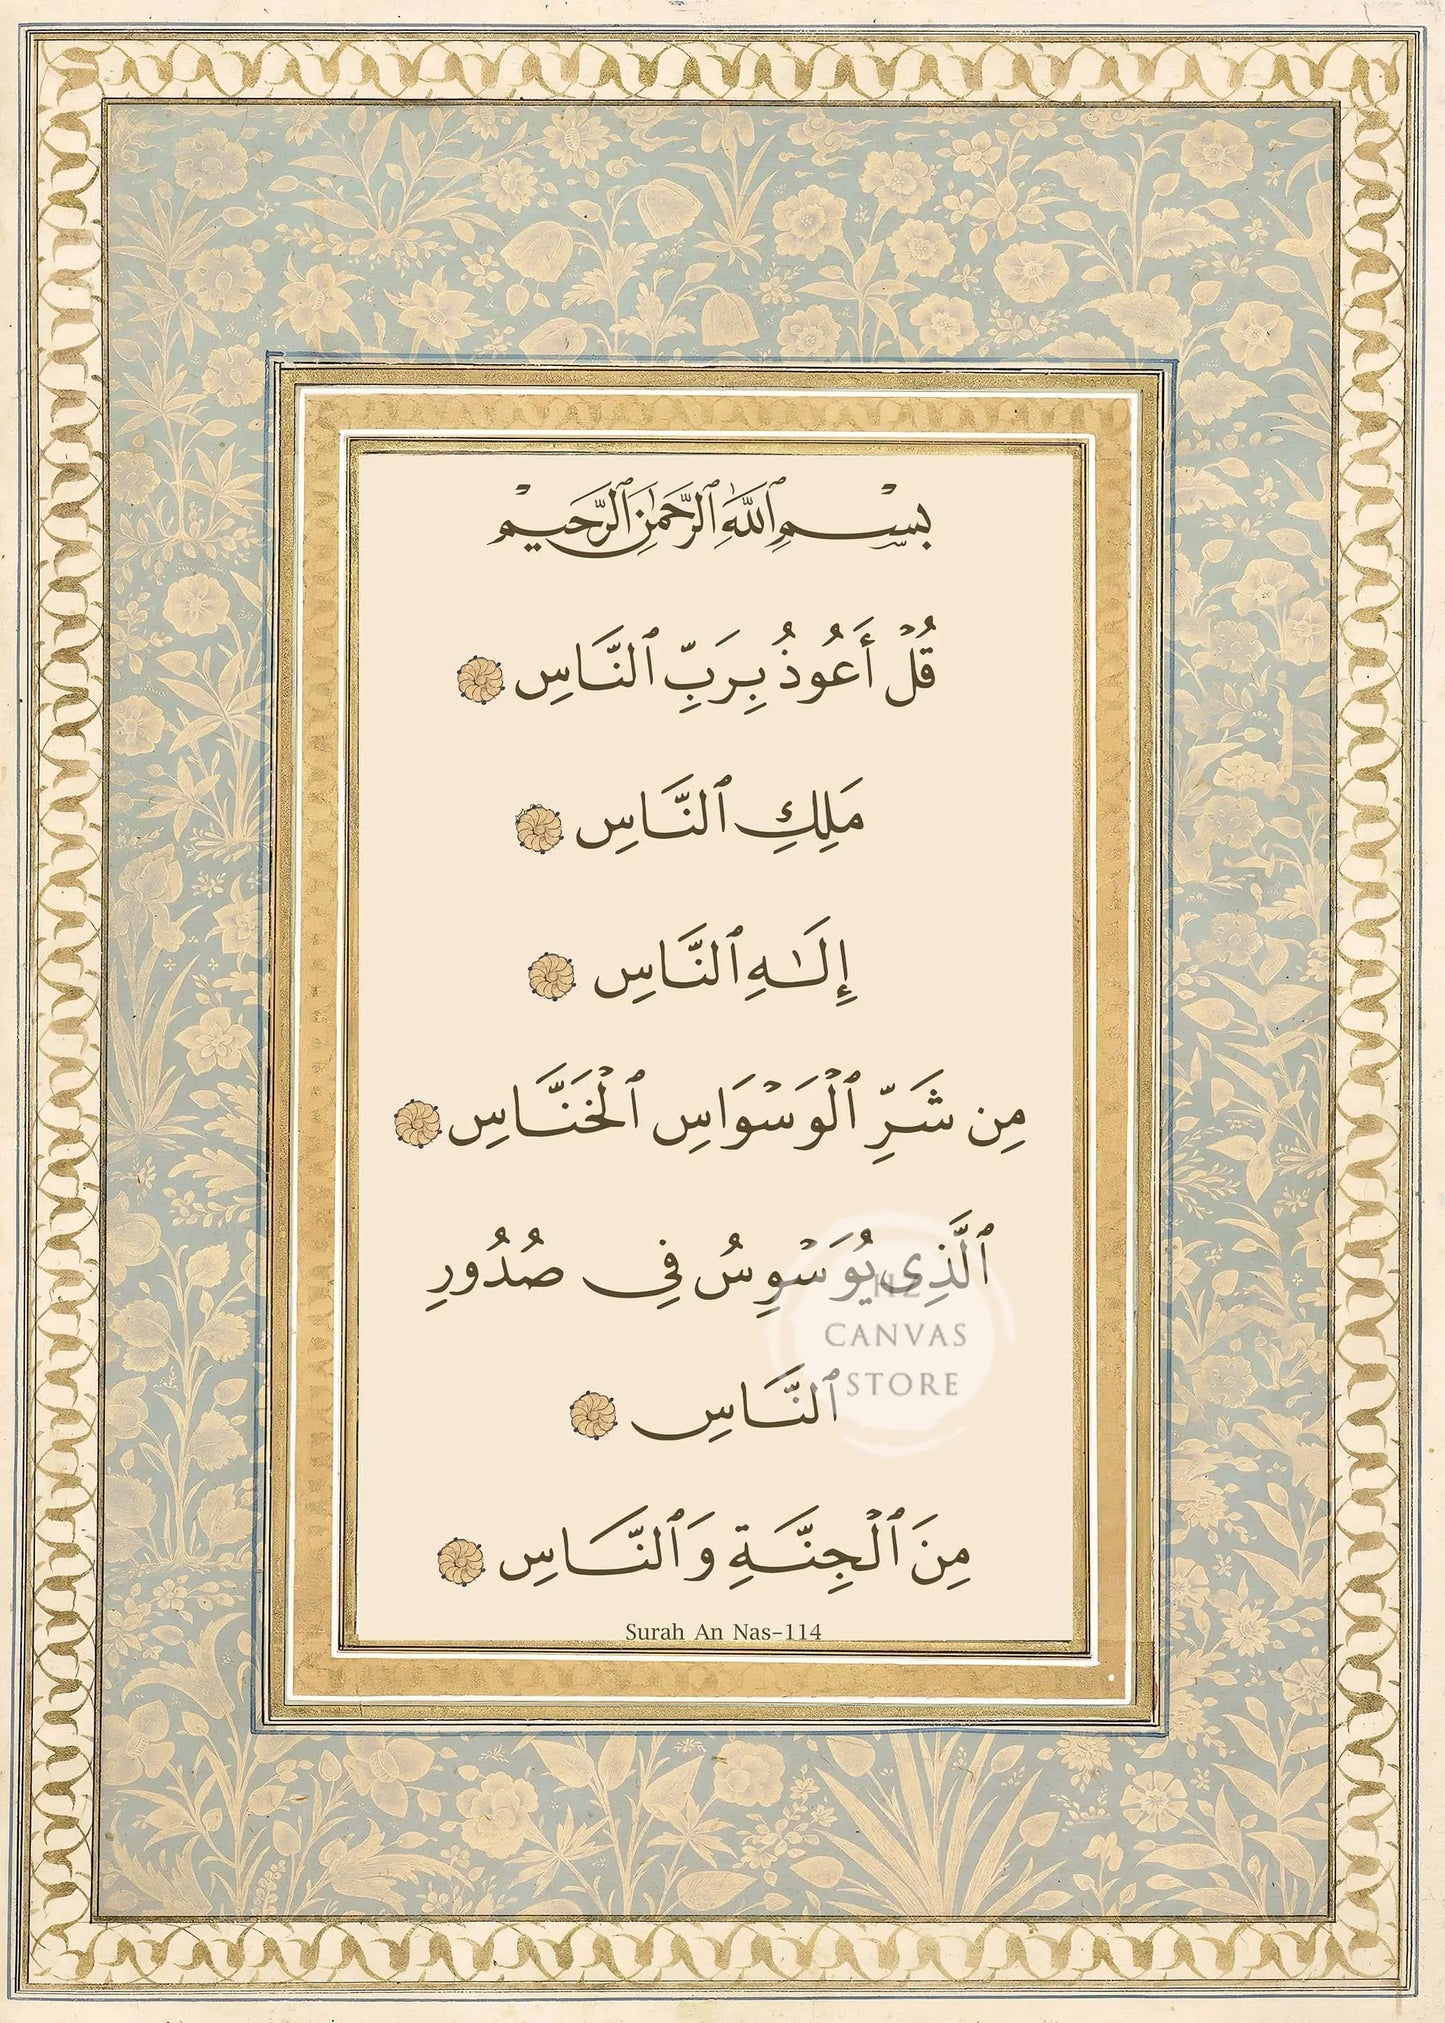 بِسْمِ ٱللَّهِ ٱلرَّحْمَٰنِ ٱلرَّحِيمْ
قُلْ أَعُوذُ بِرَبِّ ٱلنَّاسِ
مَلِكِ ٱلنَّاسِ
إِلَـٰهِ ٱلنَّاسِ
مِن شَرِّ ٱلْوَسْوَاسِ ٱلْخَنَّاسِ
ٱلَّذِى يُوَسْوِسُ فِى صُدُورِ
HZ
CANVAS
STORE
ٱلنَّاسِ
مِنَ ٱلْجِنَّةِ وَٱلنَّاسِ
Surah An Nas-114